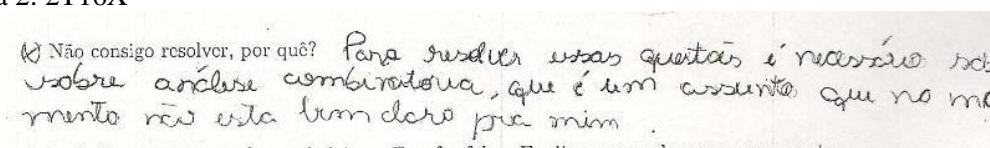 (x) Não consigo resolver, por quê? Para resolver essas questões é necessário
sobre análise combinatoria, que é um assunto que no mo
mento não esta bem claro pra mim.